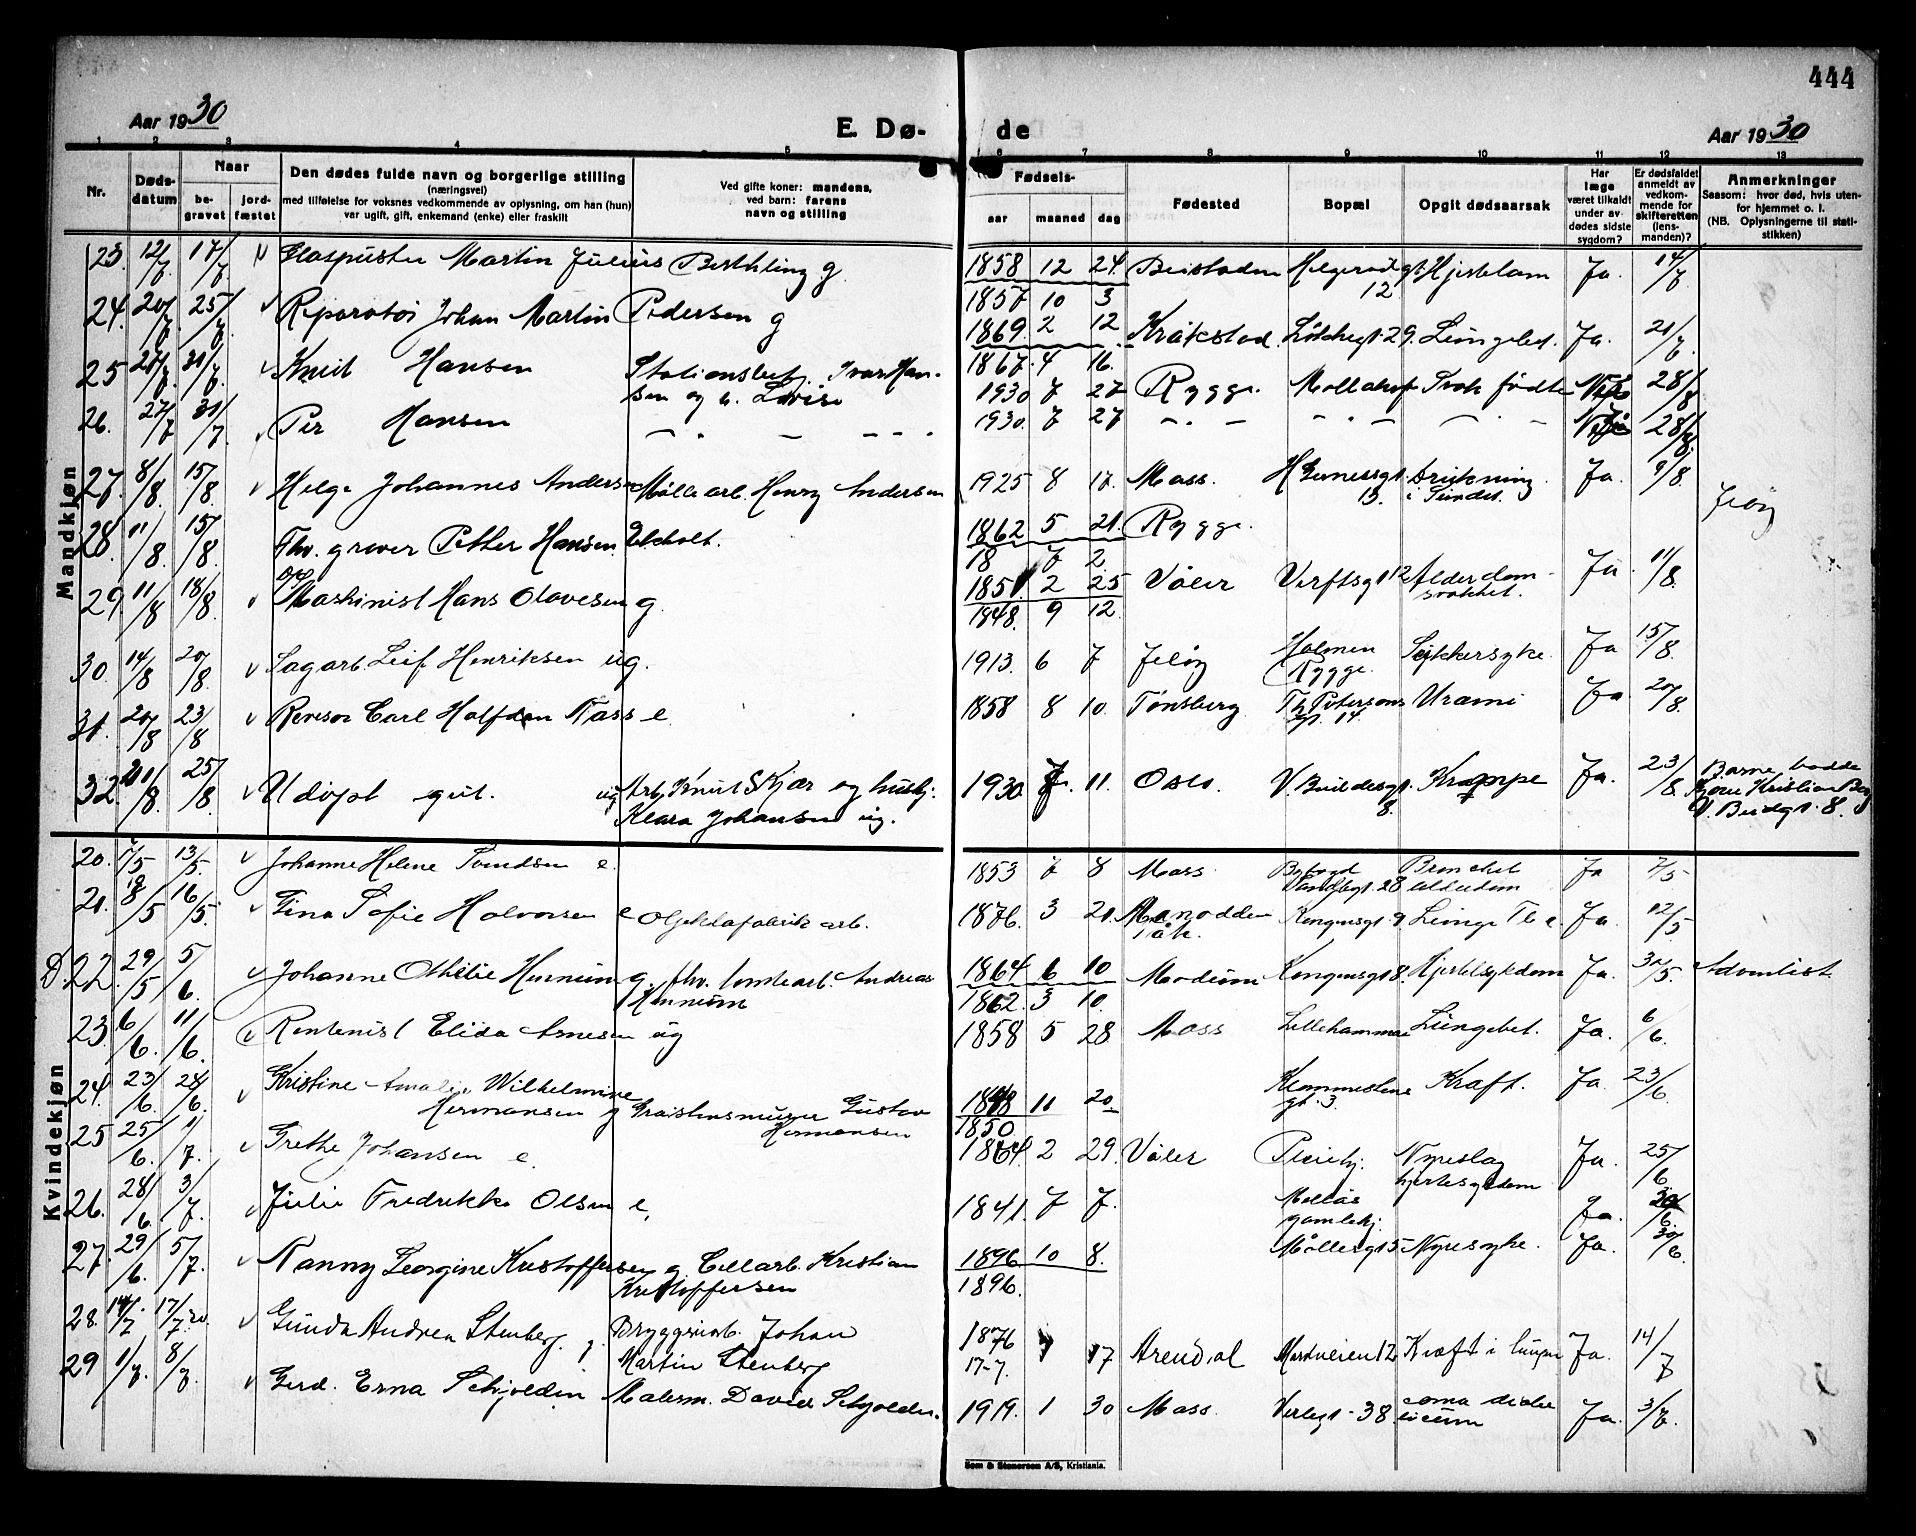 444
Aar 1930
E. Dø-
de
Aar 1930
1 2 3 4 5 6 7 8 9 10 11 12 13
Nr.
Døds-
datum
Naar
be-
gravet
jord-
fæstet
Den dødes fulde navn og borgerlige stilling
(næringsvei)
med tilføielse for voksnes vedkommende av oplysning, om han (hun)
var ugift, gift, enkemand (enke) eller fraskilt
Ved gifte koner: mandens,
ved barn: farens
navn og stilling
Fødsels-
aar maaned dag
Fødested
Bopæl
Opgit dødsaarsak
Har
læge
været tilkaldt
under av-
dødes sidste
sygdom?
Er dødsfaldet
anmeldt av
vedkom-
mende for
skifteretten
(lens-
manden)?
Anmerkninger
Saasom: hvor død, hvis uten-
for hjemmet o. l.
(NB. Oplysningerne til stati-
stikken)
Mandkjøn
23. 12/7 17/7 Martin Julius Berthling g. 1858 12 24. Beistaden 12 Hjertelam Ja. 14/7
1857 10 3
24. 20/7 25/7 Reparatør Johan Martin Pedersen g 1869. 2 12 Kråkstad 29. Lungebet. Ja. 21/7
1867. 4 16.
25 27/7 31/7 Knut Hansen Stationsbet. Ivar Han-
sen og h. Lovise 1930 7 27 Rygge. Svak født 28/7
26. 27/7 31/7 Per Hansen 1930. 7 27 28/7
27. 8/8 15/8 Helge Johannes Andersen Møllearb. Henry Andersen 1925 8 17. Moss. H. Gernersgt. 13. Drukning
i Sundet. Ja. 9/8 Jeløy
28. 11/8 15/8 Fhv. graver Petter Hansen Ekeholt. 1862 5 21. Rygge.
18 7 2.
29 11/8 18/8 Maskinist Hans Olavesen g. 1851 2 25 Våler Verftsgt 12 Alderdom-
svakhet. Ja 11/8.
1848. 9 12.
30. 14/8 20/8. Sagarb. Leif Henriksen ug. 1913. 6 7 Jeløy Holmen
Rygge. Sukkersyke. Ja 15/8.
31. 20/8 23/8 Revisor Carl Halfdan Næss e. 1858 8 10. Tønsberg Th. Petersons
gt. 14 Uræmi Ja 20/8.
32. 21/8. 25/8 Udøpt gut. Arb. Knut Skjær og hushj.
Klara Johansen ug. 1930 11. Oslo. 8. Krampe Ja. 23/8 Barne
Kristian Berg
8.
Kvindekjøn
20. 7/5 13/5. Johanne Helene e. 1853 7 8 Moss 28 Bronchit
alderdom Ja 7/5
21. 8/5 16/5. Gina Sofie Halvorsen e 1876. 3 20. Kongensgt. 9 Lunge Tb c Ja. 12/5.
D. 22. 29/5 5/6. Johanne Othilie Hennum g. fhv. tomtearb. Andreas
Hennum 1864 6 10 Modum Kongensgt 8. Hjertesykdom Ja. 30/5. Adventist
1862. 3 10.
23. 6/6. 11/6. Rentenist Elida Arnesen ug 1858 5 28. Moss Lillehammer Lungebet. Ja. 6/6.
24. 23/6. 28/6. Kristine Amalie Wilhelmine
Hermansen g Gustav
Hermansen 1848 11 20. gt. 3. Kræft. Ja. 23/6.
1850
25 25/6. 1/7. Grethe Johansen e. 1864. 2 29. Våler Pleiehj. Nyreslag
hjertesygdom Ja. 25/6.
26. 28/6. 3/7. Julie Fredrikke Olsen e. 1841. 7 7. gamlehj. Ja. 30/6.
27. 29/6. 5/7. Nanny Georgine Kristoffersen g Cellarb. Kristian
Kristoffersen 1896 10 8. Møllergt 5 Nyresyke. Ja. 30/6
1896.
28. 14/7 17/7 Gunda Andrea Stenberg. g. Bryggriarb. Johan
Martin Stenberg 1876 17 Arendal 12 Kræft i lungen Ja. 14/7
17-7.
29 1/7. 8/7. Gerd. Erna Schjoldin Malerm. David Schjolden. 1919. 1 30 Moss. Verlegt. 38 coma diabe
Ja. 3/7.
Sem & Stenersen A/S, Kristiania.